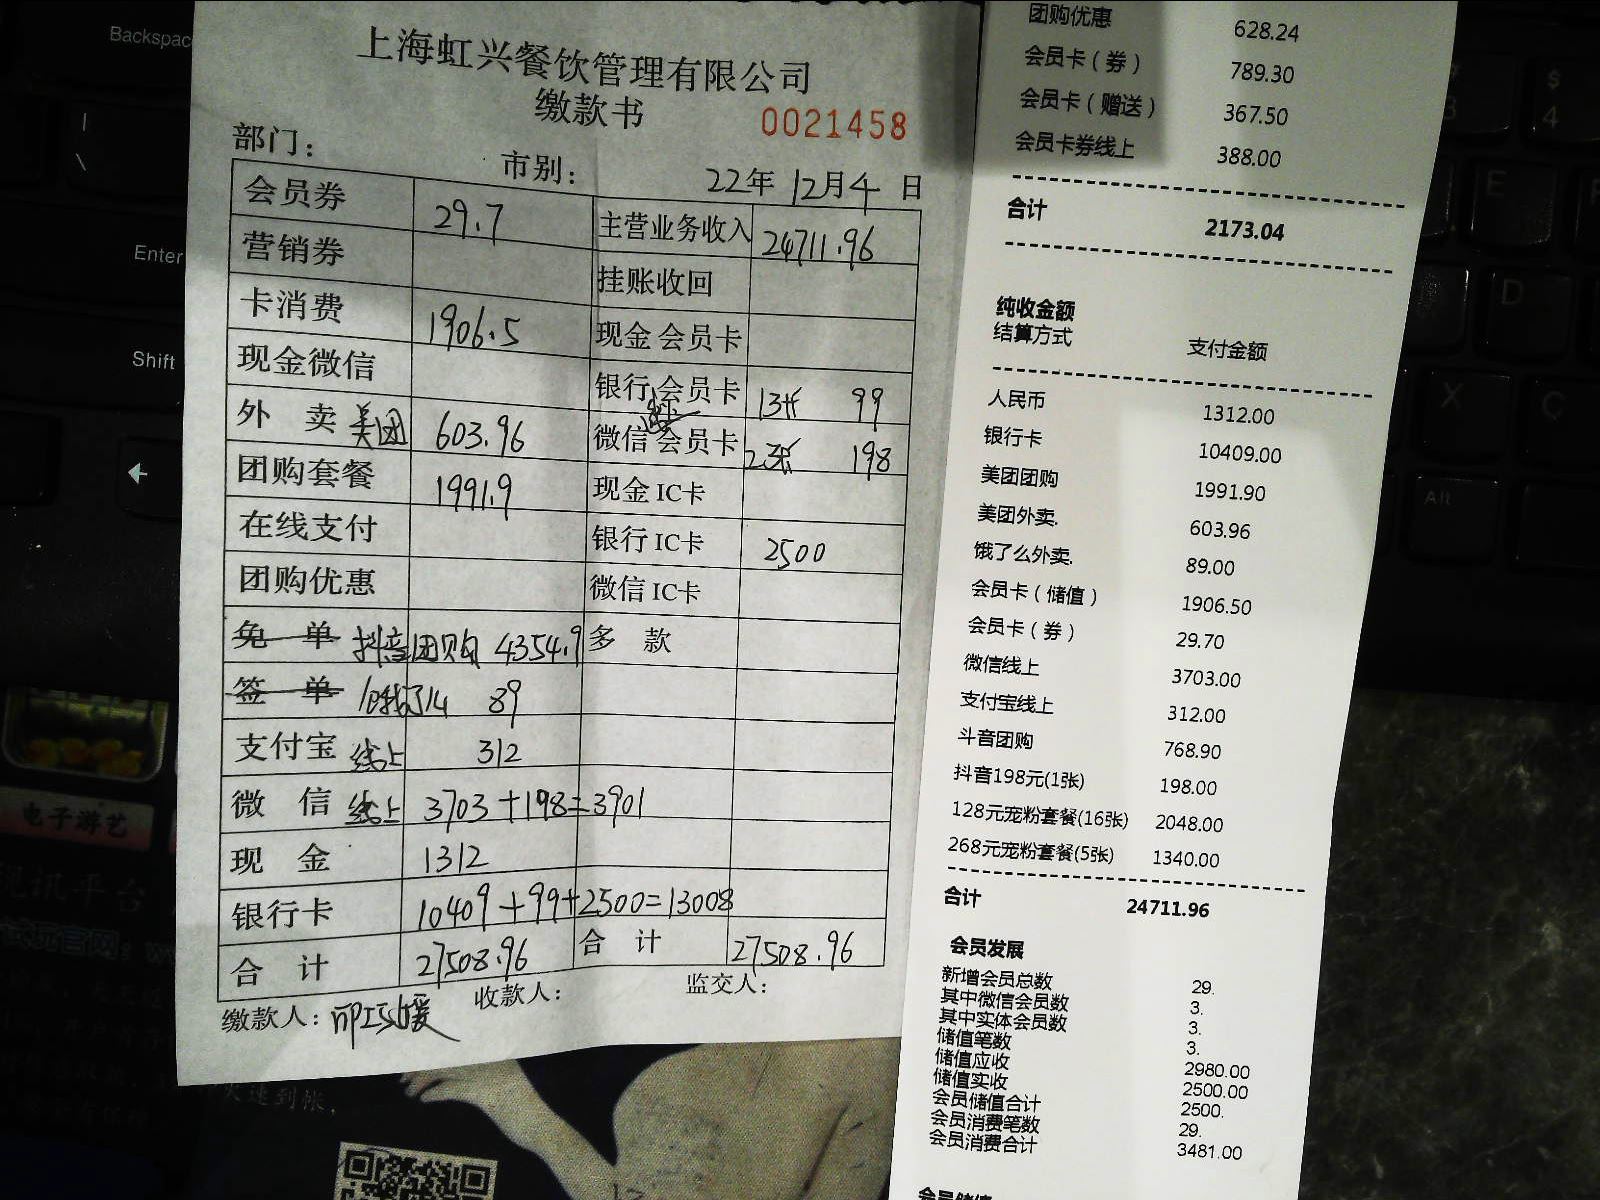 Backspac
Enter
Shift
上海虹兴餐饮管理有限公司
缴款书
0021458
部门：
市别：
22年 12月4日
会员券 29.7 主营业务收入 24711.96
营销券 挂账收回
卡消费 1906.5 现金 会员卡
现金微信 银行 会员卡 1张 99
外 卖 美团 603.96 微信 会员卡 2张 198
团购套餐 1991.9 现金 IC卡
在线支付 银行 IC卡 2500
团购优惠 微信 IC卡
免 单 抖音团购 4354.9 多 款
签 单 饿了么 89
支付宝 线上 312
微 信 线上 3703+198=3901
现 金 1312
银行卡 10409+99+2500=13008
合 计 27508.96 合 计 27508.96
缴款人： 收款人： 监交人：
团购优惠 628.24
会员卡（券） 789.30
会员卡（赠送） 367.50
会员卡券线上 388.00
合计 2173.04
纯收金额
结算方式 支付金额
人民币 1312.00
银行卡 10409.00
美团团购 1991.90
美团外卖. 603.96
饿了么外卖. 89.00
会员卡（储值） 1906.50
会员卡（券） 29.70
微信线上 3703.00
支付宝线上 312.00
斗音团购 768.90
抖音198元(1张) 198.00
128元宠粉套餐(16张) 2048.00
268元宠粉套餐(5张) 1340.00
合计 24711.96
会员发展
新增会员总数 29.
其中微信会员数 3.
其中实体会员数 3.
储值笔数 3.
储值应收 2980.00
储值实收 2500.00
会员储值合计 2500.
会员消费笔数 29.
会员消费合计 3481.00
会员储值
$
4
E
D
X
C
Alt
电子游艺